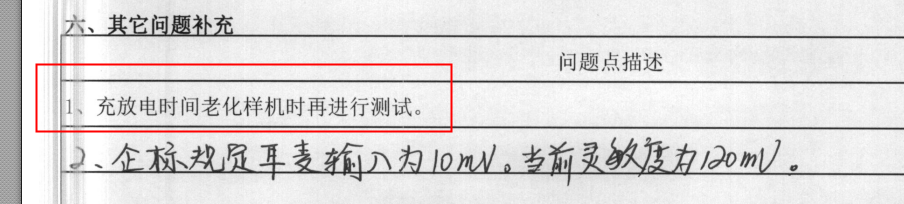 六、其它问题补充
问题点描述
1、充放电时间老化样机时再进行测试。
2、企标规定耳麦输入为10mV。当前灵敏度为120mV。